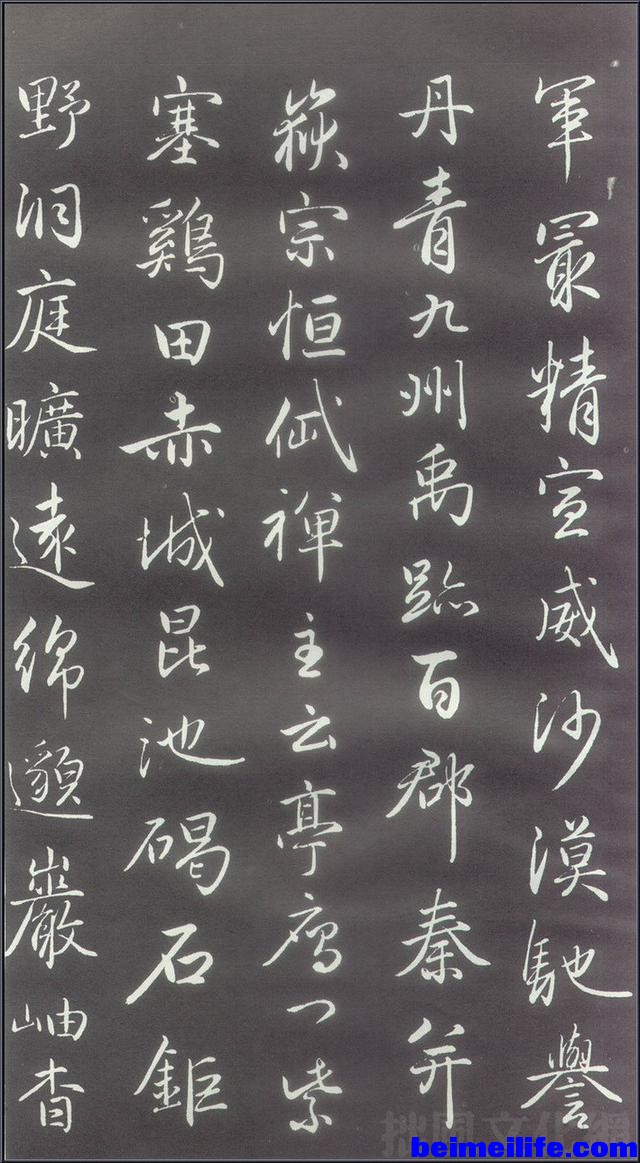 軍冣精宣威沙漠馳譽
丹青九州禹跡百郡秦并
嶽宗恒岱禪主云亭鴈門紫
塞鷄田赤城昆池碣石鉅
野洞庭曠遠綿邈巖岫杳
拙風文化網
beimeilife.com